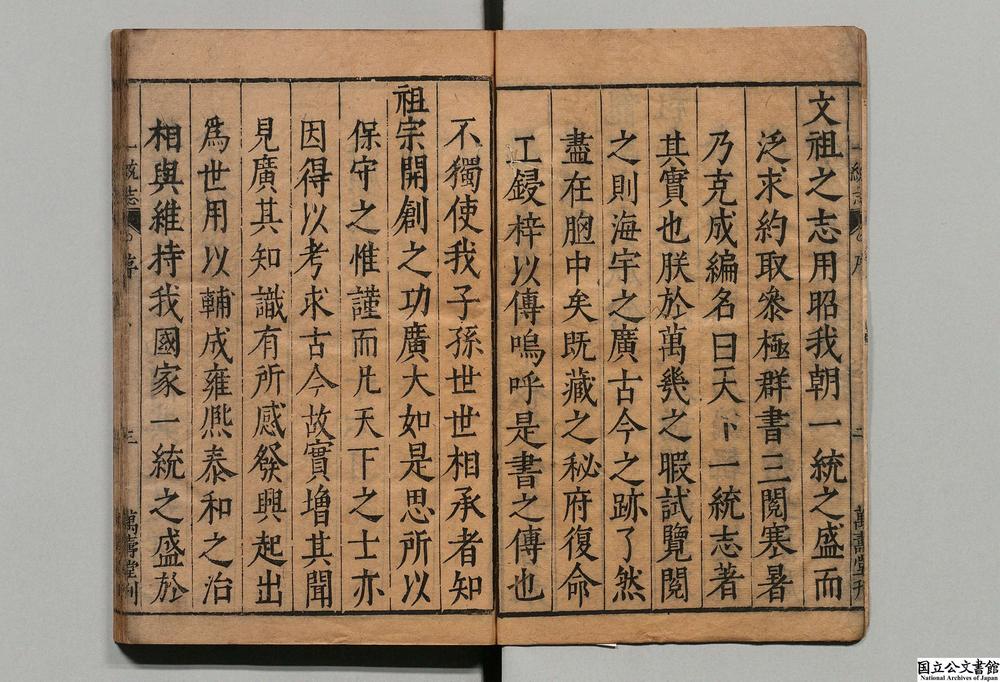 文祖之志用昭我朝一統之盛而
泛求約取叅極群書三閱寒暑
乃克成編名曰天下一統志著
其實也朕於萬幾之暇試覽閱
之則海宇之廣古今之跡了然
盡在胷中矣既藏之秘府復命
工鋟梓以傳嗚呼是書之傳也
不獨使我子孫世世相承者知
祖宗開創之功廣大如是思所以
保守之惟謹而凡天下之士亦
因得以考求古今故實增其聞
見廣其知識有所感發興起出
爲世用以輔成雍熈泰和之治
相與維持我國家一統之盛於
一統志
序
三
萬壽堂刊
国立公文書館
National Archives of Japan